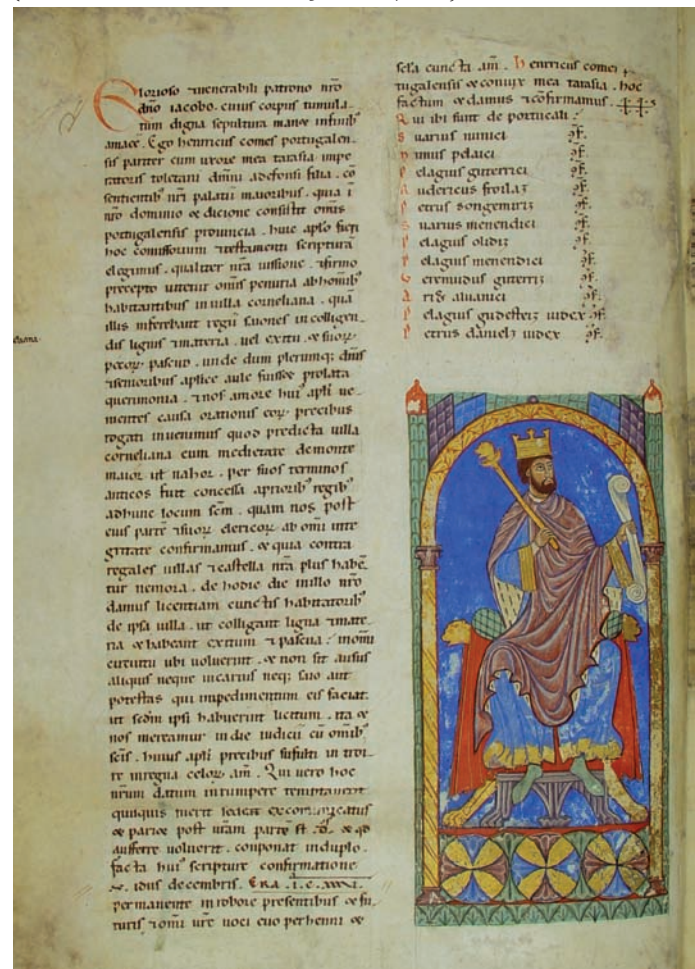 Glorioso ⁊ venerabili patrono nr̄o
dn̄o iacobo. cuius corpus tumula
tum digna sepultura manet infinib᷒
amaee. Ego henricus comes portugalen
sis pariter cum uxore mea tarasia impe
ratoris toletani dn̄i adefonsi filia. cō
sentientib᷒ nr̄i palatii maiorib᷒. quia ī
nr̄o dominio et dicione consistit omīs
portugalensis prouincia. huic apl̄o fieri
hoc comissorium ⁊ testamenti scripturā
elegimus. qualiter nr̄a iussione. ⁊ firmo
precepto uitetur omīs penuria ab homīb᷒
habitantibus in uilla corneliana. quā
illis inferebant regū saiones in colligen
dis lignis ⁊ materia. uel exitu. et suoꝝ
pecoꝝ pascuo. unde dum plerumq;
⁊ senioribus aplice aule fuisset prolata
querimonia. ⁊ nos amore hui᷒ apl̄i ue
nientes causa orationis eoꝝ precibus
rogati inuenimus quod predicta uilla
corneliana cum medietate de monte
maior ut nahor. per suos terminos
anticos fuit concessa a priorib᷒ regib᷒
ad hunc locum sc̄m. quam nos post
eius parte ⁊ suoꝝ clericoꝝ ab omi inte
gritate confirmamus. et quia contra
regales uillas ⁊ castella nr̄a plus habē
tur nemora. de hodie die in illo nr̄o
damus licentiam cunctis habitatorib᷒
de ipsa uilla. ut colligant ligna ⁊ mate
ria et habeant exitum ⁊ pascua in omī
circuitu ubi uoluerint. et non sit ausus
aliquis neque uicarius neq; suo aut
potestas qui impedimentum eis faciat.
ut sc̄dm ipsi habuerint licitum. ita et
nos mereamur in die iudicii cū omīb᷒
sc̄is. huius apl̄i precibus suffulti in troi
re in regna celoꝝ. am̄. Qui uero hoc
nr̄um datum inrumpere temptauerit
quisquis fuerit sedeat excomunicatus
et pariet post ur̄am partē et qd̄
aufferre uoluerit. conponat in duplo.
facta hui᷒ scripture confirmatione
v. idus decembris. ERA
permanente in robore presentibus et fu
turis ⁊ omi ure uoci euo perhenni et
sc̄la cuncta am̄. Henricus comes por
tugalensis et coniux mea tarasia. hoc
factum et damus ⁊ cōfirmamus.
Qui ibi sunt de portucali:
Suarius nunici cf.
Nunus pelaici cf.
Pelagius guterrici cf.
Audericus froilaz cf.
Petrus songemiriz cf.
Suarius menendici cf.
Pelagius olidiz cf.
Pelagius menendici cf.
Veremudus guterriz cf.
Arias aluanici cf.
Pelagius gudesteiz iudex cf.
Petrus danielz iudex cf.